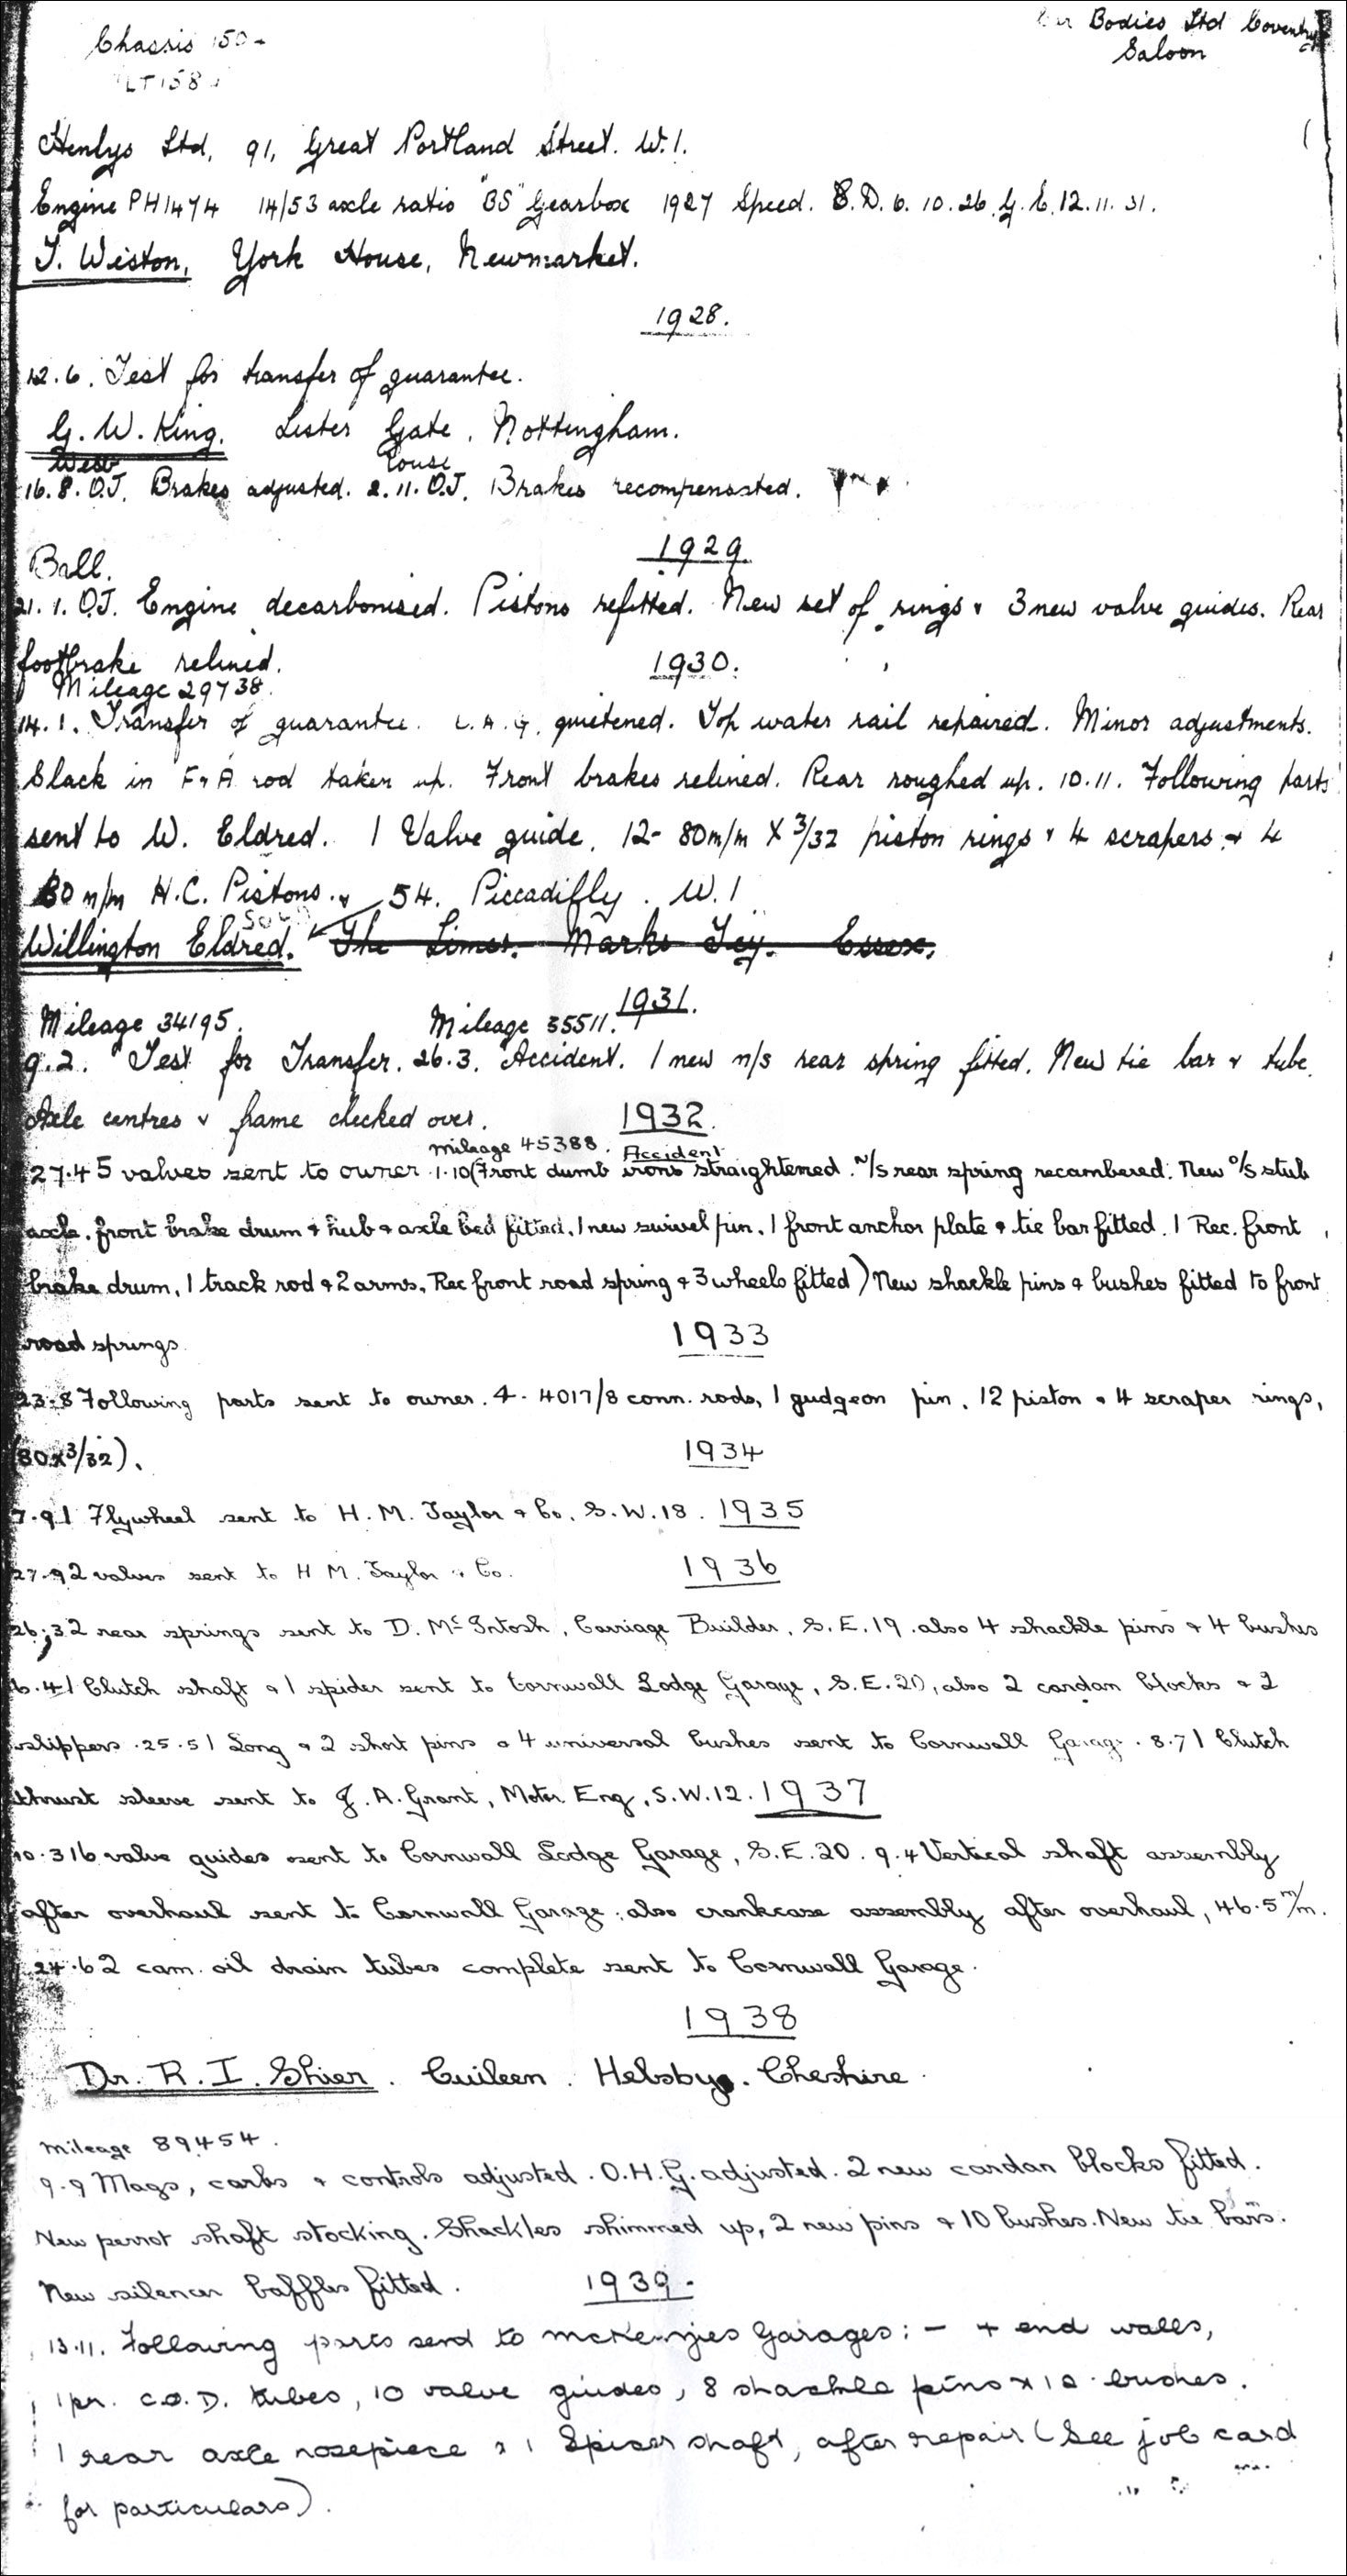 Chassis 150
LT158
Bodies Ltd Coventry
Saloon
Henlys Ltd, 91, Great Portland Street. W.1.
Engine PH1474 14/53 axle ratio "BS" Gearbox 1927 Speed. S.D. 6.10.26. G.E. 12.11.31.
J. Weston, York House, Newmarket.
1928.
12.6. Test for transfer of guarantee.
G. W. King. Lister Gate, Nottingham.
West Rouse
16.8. O.J. Brakes adjusted. 2.11. O.J. Brakes recompensated.
1929
Ball.
21.1. O.J. Engine decarbonised. Pistons refitted. New set of rings & 3 new valve guides. Rear
footbrake relined.
1930.
Mileage 29738.
14.1. Transfer of guarantee. C.A.G. quietened. Top water rail repaired. Minor adjustments.
Slack in F & A rod taken up. Front brakes relined. Rear roughed up. 10.11. Following parts
sent to W. Eldred. 1 Valve guide, 12- 80m/m X 3/32 piston rings & 4 scrapers & 4
80 m/m H.C. Pistons. 54. Piccadilly. W.1
Willington Eldred. The Limes. Marks Tey. Essex.
1931.
Mileage 34195. Mileage 35511.
9.2. Test for Transfer. 26.3. Accident. 1 new n/s rear spring fitted. New tie bar & tube.
Axle centres & frame checked over. 1932.
mileage 45388. Accident
27.4 5 valves sent to owner. 1.10 (Front dumb irons straightened. N/S rear spring recambered. New O/S stub
axle, front brake drum & hub & axle bed fitted, 1 new swivel pin, 1 front anchor plate & tie bar fitted. 1 Rec. front
brake drum, 1 track rod & 2 arms, Rec front road spring & 3 wheels fitted) New shackle pins & bushes fitted to front
road springs. 1933
23.8 Following parts sent to owner. 4- 4017/8 conn. rods, 1 gudgeon pin, 12 piston & 4 scraper rings,
(80x3/32). 1934
7.9 1 Flywheel sent to H. M. Taylor & Co. S.W.18. 1935
27.9 2 valves sent to H M. Taylor & Co. 1936
26.3 2 rear springs sent to D. McIntosh, Carriage Builder, S.E.19. also 4 shackle pins & 4 bushes
6.4 1 Clutch shaft & 1 spider sent to Cornwall Lodge Garage, S.E.20, also 2 cardan blocks & 2
slippers. 25.5 1 Long & 2 short pins & 4 universal bushes sent to Cornwall Garage. 8.7 1 Clutch
thrust sleeve sent to J. A. Grant, Motor Eng, S.W.12. 1937
10.3 16 valve guides sent to Cornwall Lodge Garage, S.E.20. 9.4 Vertical shaft assembly
after overhaul sent to Cornwall Garage; also crankcase assembly after overhaul, 46.5 m/m.
24.6 2 cam oil drain tubes complete sent to Cornwall Garage.
1938
Dr. R. I. Shier. Cuileen. Helsby. Cheshire.
mileage 89454.
9.9 Mags, carbs & controls adjusted. O.H.G. adjusted. 2 new cardan blocks fitted.
New perrot shaft stocking. Shackles shimmed up, 2 new pins & 10 bushes. New tie bars.
New silencer baffles fitted. 1939.
13.11. Following parts send to McKenzies Garages:- 4 end walls,
1 pr. C.O.D. tubes, 10 valve guides, 8 shackle pins x 12 bushes.
1 rear axle nosepiece x 1 Spicer shaft, after repair (See job card
for particulars).